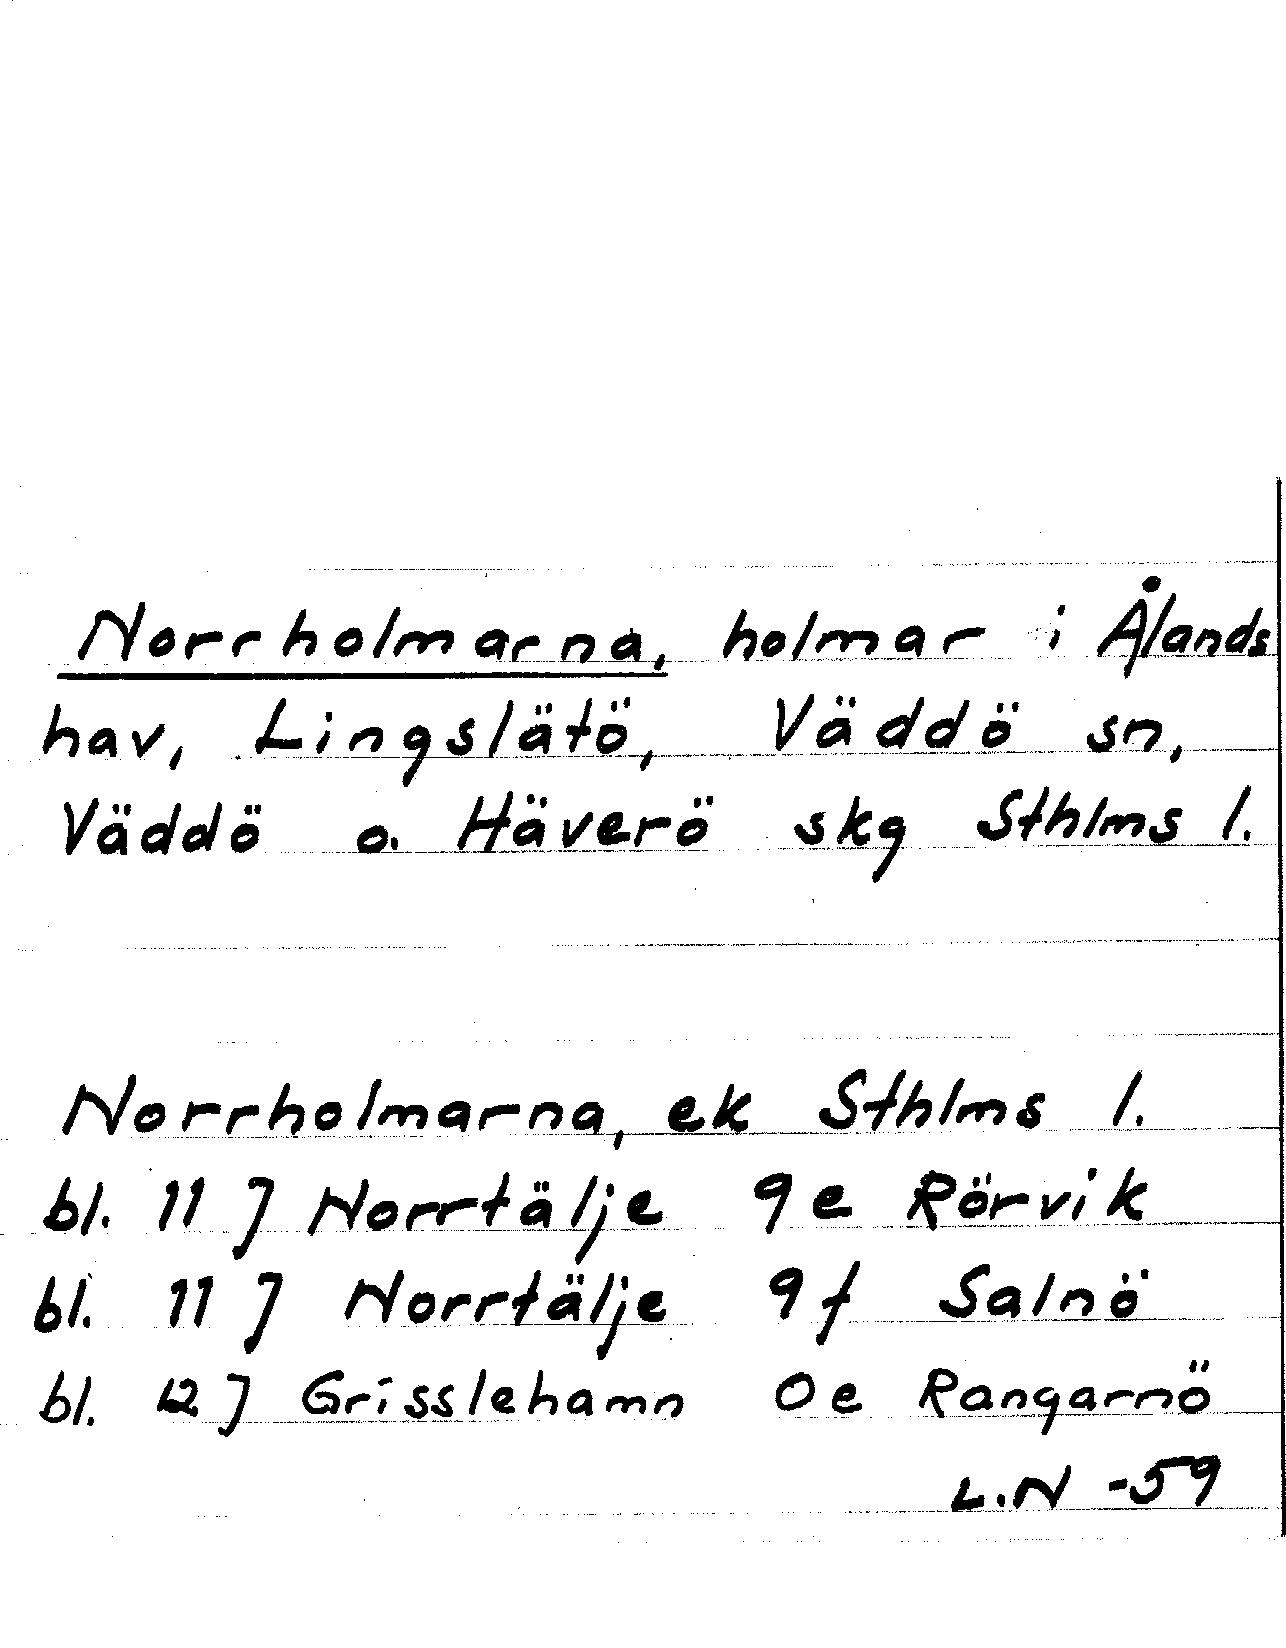 Norrholmarna, holmar i Ålands
hav, Lingslätö, Väddö sn,
Väddö o. Häverö skg Sthlms l.
Norrholmarna, ek Sthlms l.
bl. 11 J Norrtälje 9e Rörvik
bl. 11 J Norrtälje 9f Salnö
bl. 12 J Grisslehamn 0e Rangarnö
L.N -59